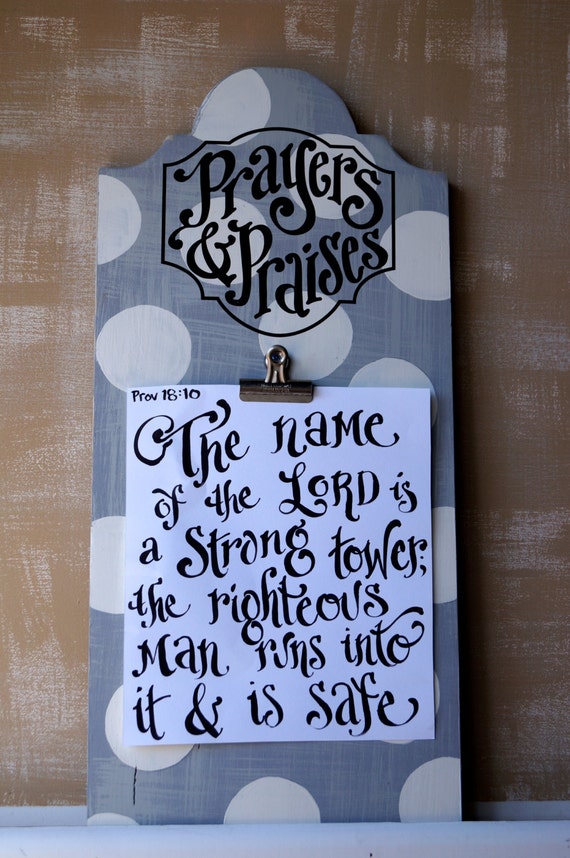 Prayers
& Praises
Prov 18:10
The name
of the LORD is
a strong tower;
the righteous
Man runs into
it & is safe